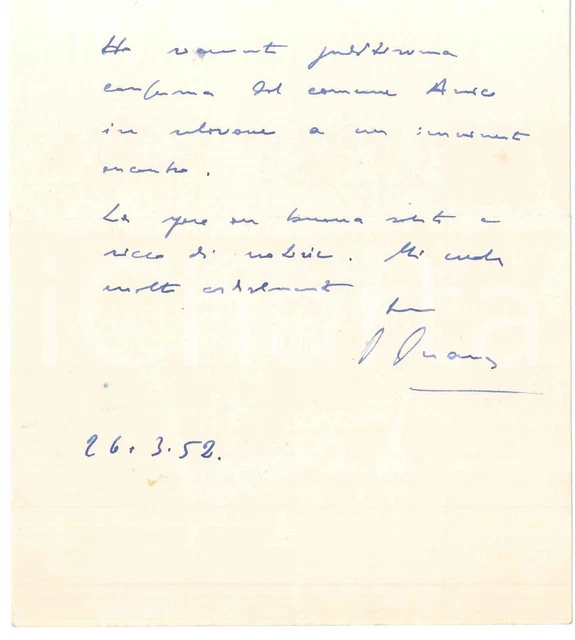 Ho
conferma del comune Amico
in relazione a un imminente
incontro.
La spero in buona salute e
ricco di notizie. Mi creda
molto cordialmente
Suo
26.3.52.